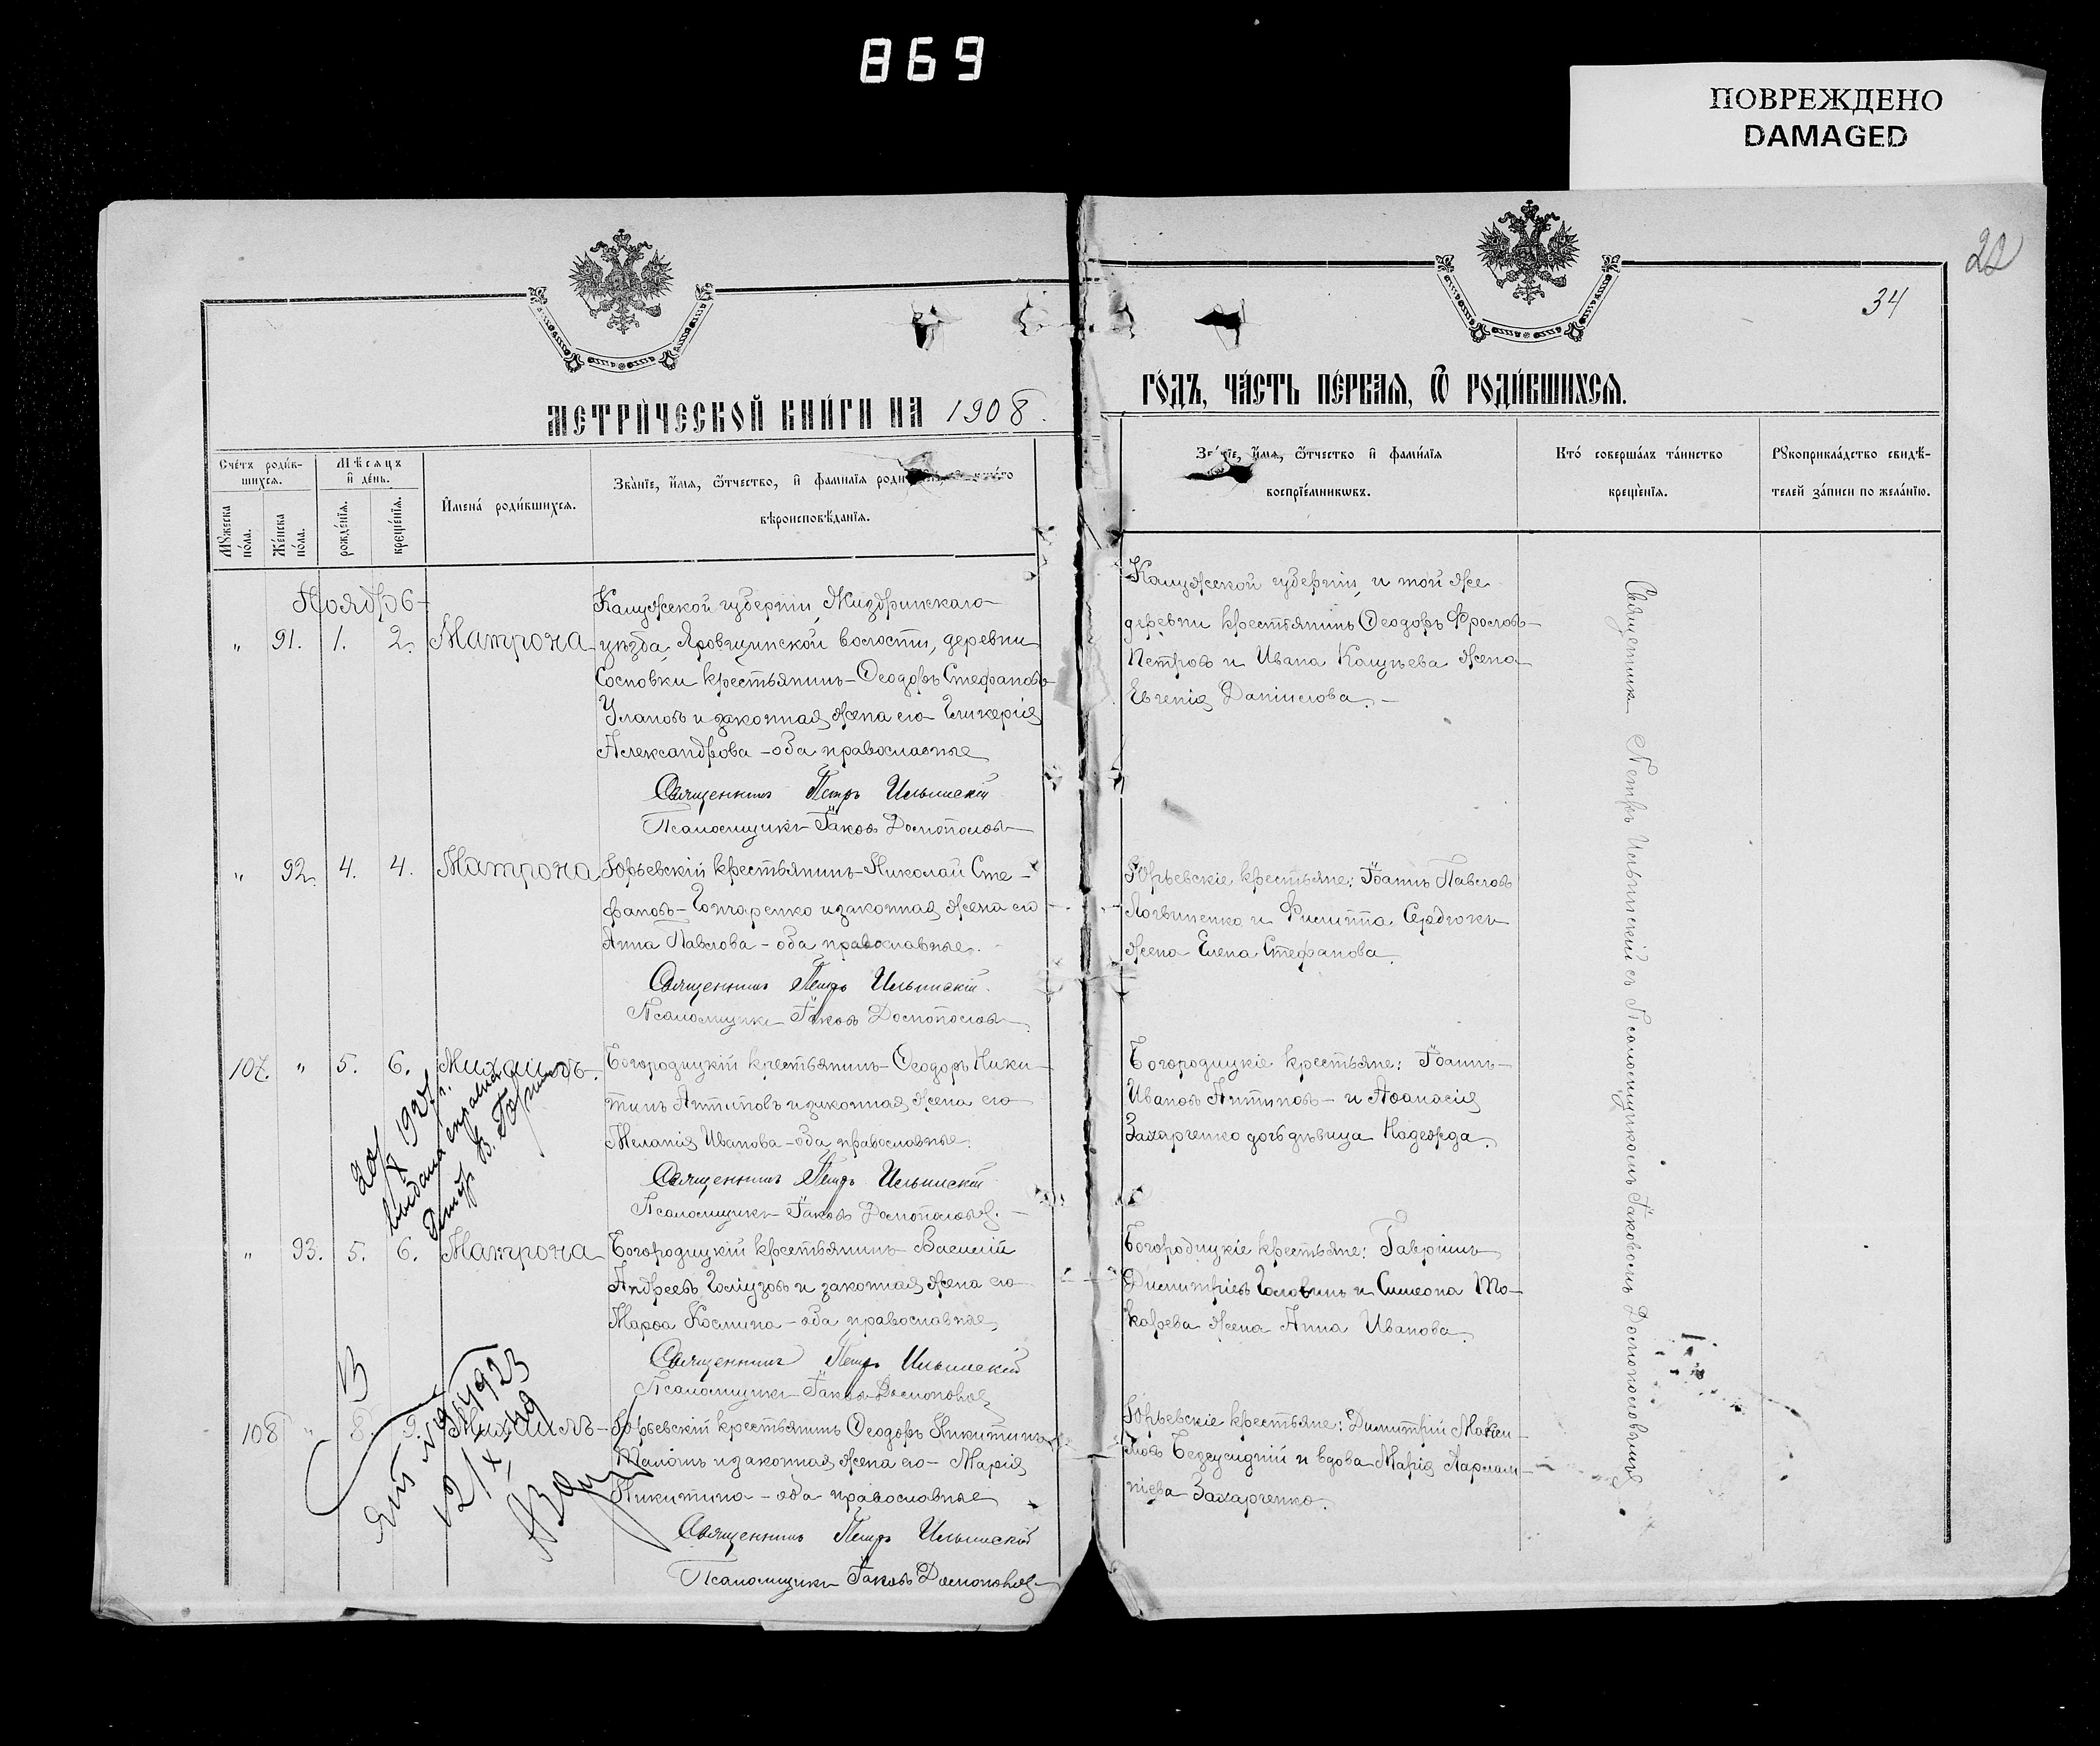 869
ПОВРЕЖДЕНО
DAMAGED
22
34
МЕТРИ́ЧЕСКОЙ КНИ́ГИ НА 1908.
ГО́ДЪ, ЧА́СТЬ ПЕ́РВАѦ, Ѿ РОДИ́ВШИХСѦ.
Сче́тъ роди́в-
шихся.
Мѣ́сяцъ
и҆ де́нь.
Мꙋ́жеска
по́ла.
Же́нска
по́ла.
рожде́нїя.
креще́нїя.
И҆мена́ роди́вшихся.
Зва́нїе, и҆́мя, ѻ҆́тчество, и҆ фами́лїя
вѣроисповѣ́данїя.
Зва́нїе, и҆́мя, ѻ҆́тчество и҆ фами́лїя
воспрїе́мникѡвъ.
Кто́ соверша́лъ та́инство
креще́нїя.
Рꙋкоприкла́дство свидѣ́-
телей за́писи по жела́нїю.
Ноябрь
Калужской губерніи Жиздринскаго
" 91. 1. 2. Матрона уѣзда, волости, деревни
Сосновки крестьянинъ Ѳеодоръ Стефановъ
Улановъ и законная жена его Гликерія
Александрова - оба православные
Священникъ Петръ Ильинскій
Псаломщикъ Іаковъ
Калужской губерніи, и той же
деревни крестьянинъ Ѳеодоръ Фроловъ
Петровъ и Ивана жена
Евгенія Даніилова.
" 92. 4. 4. Матрона Юрьевскій крестьянинъ Николай Сте-
фановъ Гончаренко и законная жена его
Анна Павлова - оба православные.
Священникъ Петръ Ильинскій.
Псаломщикъ Іаковъ
Юрьевскіе крестьяне: Іоаннъ Павловъ
Логвиненко и Филиппа Сердюкъ
жена Елена Стефанова.
107. " 5. 6. Михаилъ. Богородицкій крестьянинъ Ѳеодоръ Ники-
тинъ Антиповъ и законная жена его
Меланія Иванова - оба православные.
Священникъ Петръ Ильинскій
Псаломщикъ Іаковъ
Богородицкіе крестьяне: Іоаннъ
Ивановъ Антиповъ и Аѳанасія
Захарченко дочь дѣвица Надежда.
выдана справка
" 93. 5. 6. Матрона Богородицкій крестьянинъ Василій
Андреевъ и законная жена его
Марѳа Космина - оба православные,
Священникъ Петръ Ильинскій
Псаломщикъ Іаковъ
Богородицкіе крестьяне: Гавріилъ
Димитріевъ Головинъ и Симеона То-
карева жена Анна Иванова.
108 " 8. 9. Михаилъ Юрьевскій крестьянинъ Ѳеодоръ Никитинъ
и законная жена его Марія
Никитина - оба православные
Священникъ Петръ Ильинскій
Псаломщикъ Іаковъ
Юрьевскіе крестьяне: Димитрій Макси-
мовъ и вдова Марія
Захарченко.
1923
Священникъ Петръ Ильинскій съ Псаломщикомъ Іаковомъ